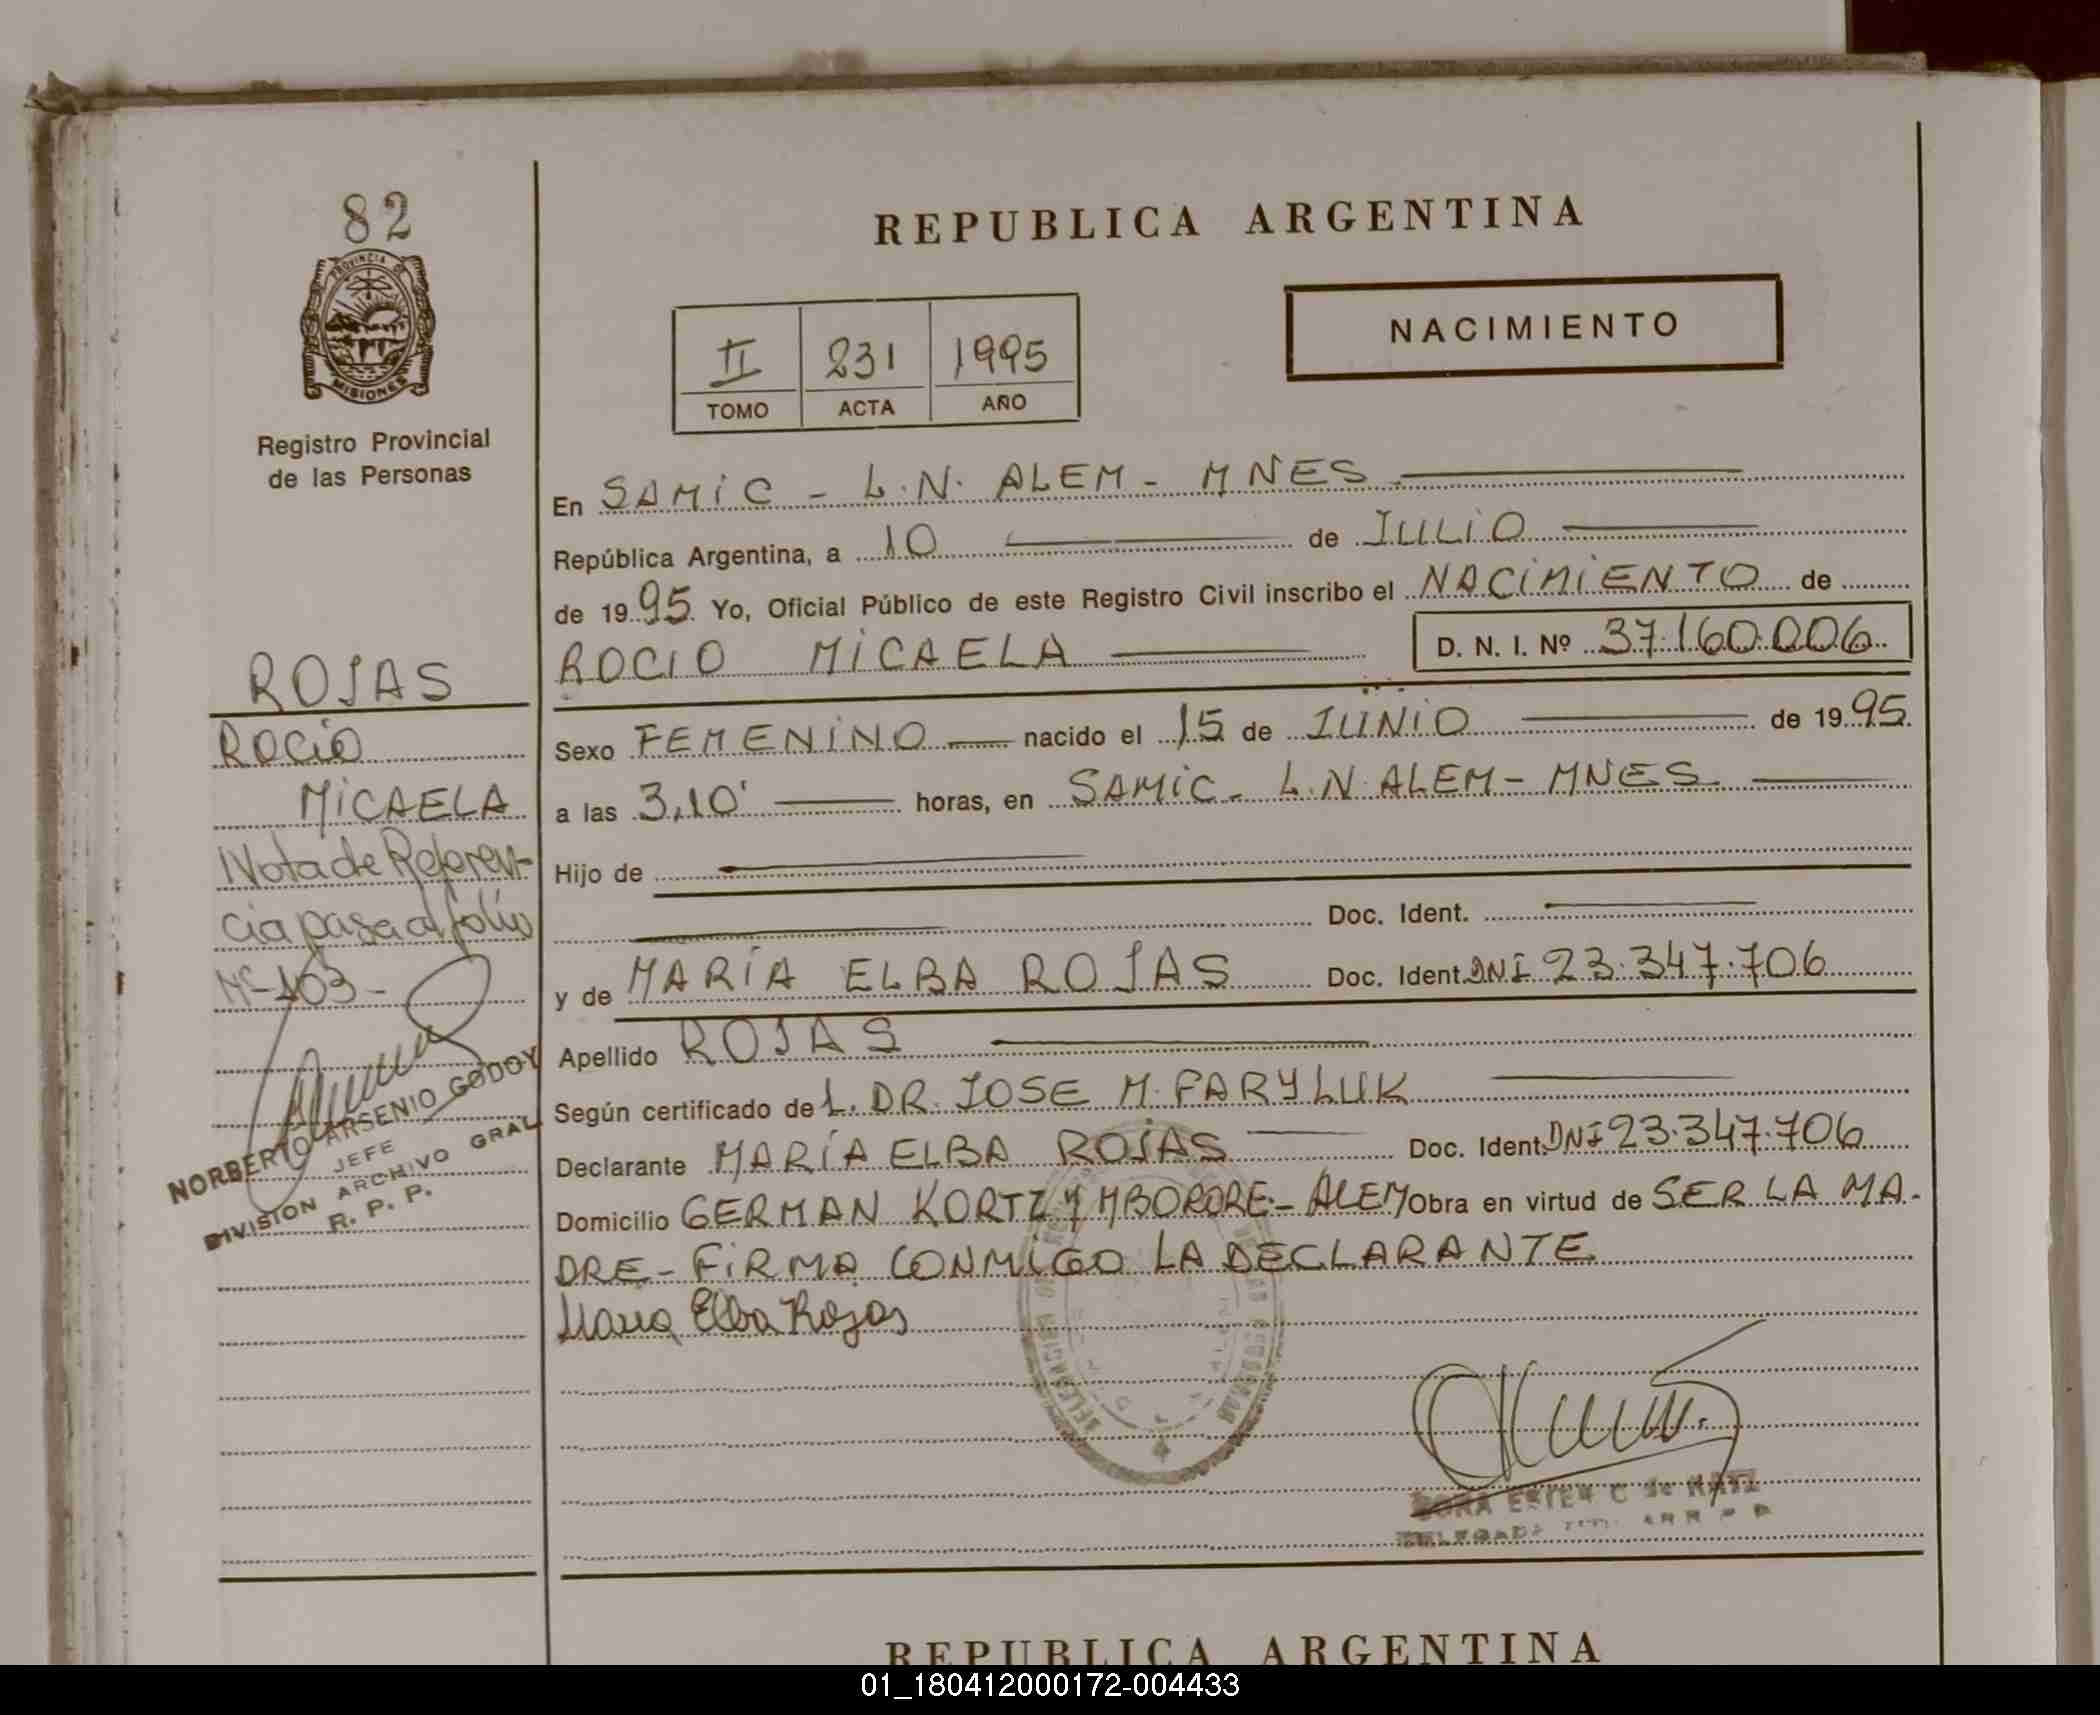 82
PROVINCIA DE
MISIONES
Registro Provincial
de las Personas
ROJAS
ROCIO
MICAELA
Nota de Referen-
cia pasa al folio
Nº 103-
NORBERTO ARSENIO GODOY
JEFE
DIVISION ARCHIVO GRAL
R. P. P.
REPUBLICA ARGENTINA
II 231 1995
TOMO ACTA AÑO
NACIMIENTO
En SAMIC - L.N. ALEM - MNES
República Argentina, a 10 de JULIO
de 1995 Yo, Oficial Público de este Registro Civil inscribo el NACIMIENTO de
ROCIO MICAELA D. N. I. Nº 37.160.006
Sexo FEMENINO nacido el 15 de JUNIO de 1995.
a las 3,10' horas, en SAMIC - L.N. ALEM - MNES
Hijo de
Doc. Ident.
y de MARÍA ELBA ROJAS Doc. Ident. DNI 23.347.706
Apellido ROJAS
Según certificado de L. DR. JOSE M. PARYLUK
Declarante MARÍA ELBA ROJAS Doc. Ident. DNI 23.347.706
Domicilio GERMAN KORTZ Y MBORORE - ALEM Obra en virtud de SER LA MA-
DRE - FIRMA CONMIGO LA DECLARANTE
Maria Elba Rojas
REPUBLICA ARGENTINA
01_180412000172-004433